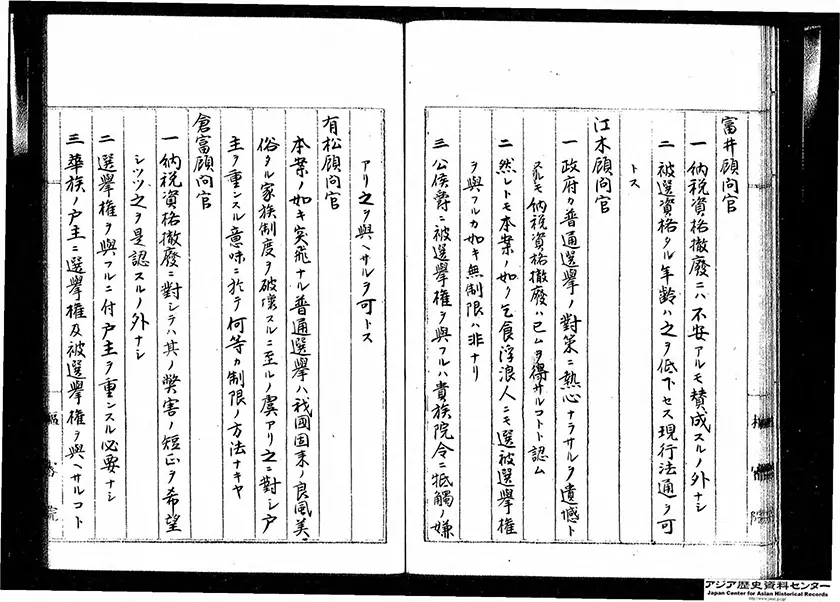 富井顧問官
一 納税資格撤廃ニハ不安アルモ賛成スルノ外ナシ
二 被選資格タル年齢ハ之ヲ低下セス現行法通ヲ可
トス
江木顧問官
一 政府カ普通選挙ノ対策ニ熱心ナラサルヲ遺憾ト
スルモ納税資格撤廃ハ已ムヲ得サルコトト認ム
二 然レトモ本案ノ如ク乞食浮浪人ニモ選被選挙権
ヲ與フルカ如キ無制限ハ非ナリ
三 公侯爵ニ被選挙権ヲ與フルハ貴族院令ニ牴触ノ嫌
アリ之ヲ與ヘサルヲ可トス
有松顧問官
本案ノ如キ突飛ナル普通選挙ハ我國固来ノ良風美
俗タル家族制度ヲ破壊スルニ至ルノ虞アリ之ニ對シ戸
主ヲ重ンスル意味ニ於テ何等カ制限ノ方法ナキヤ
倉富顧問官
一 納税資格撤廃ニ對シテハ其ノ弊害ノ短正ヲ希望
シツツ之ヲ是認スルノ外ナシ
二 選挙権ヲ與フルニ付戸主ヲ重ンスル必要ナシ
三 華族ノ戸主ニ選挙権及被選挙権ヲ與ヘサルコト
枢密院
アジア歴史資料センター
Japan Center for Asian Historical Records